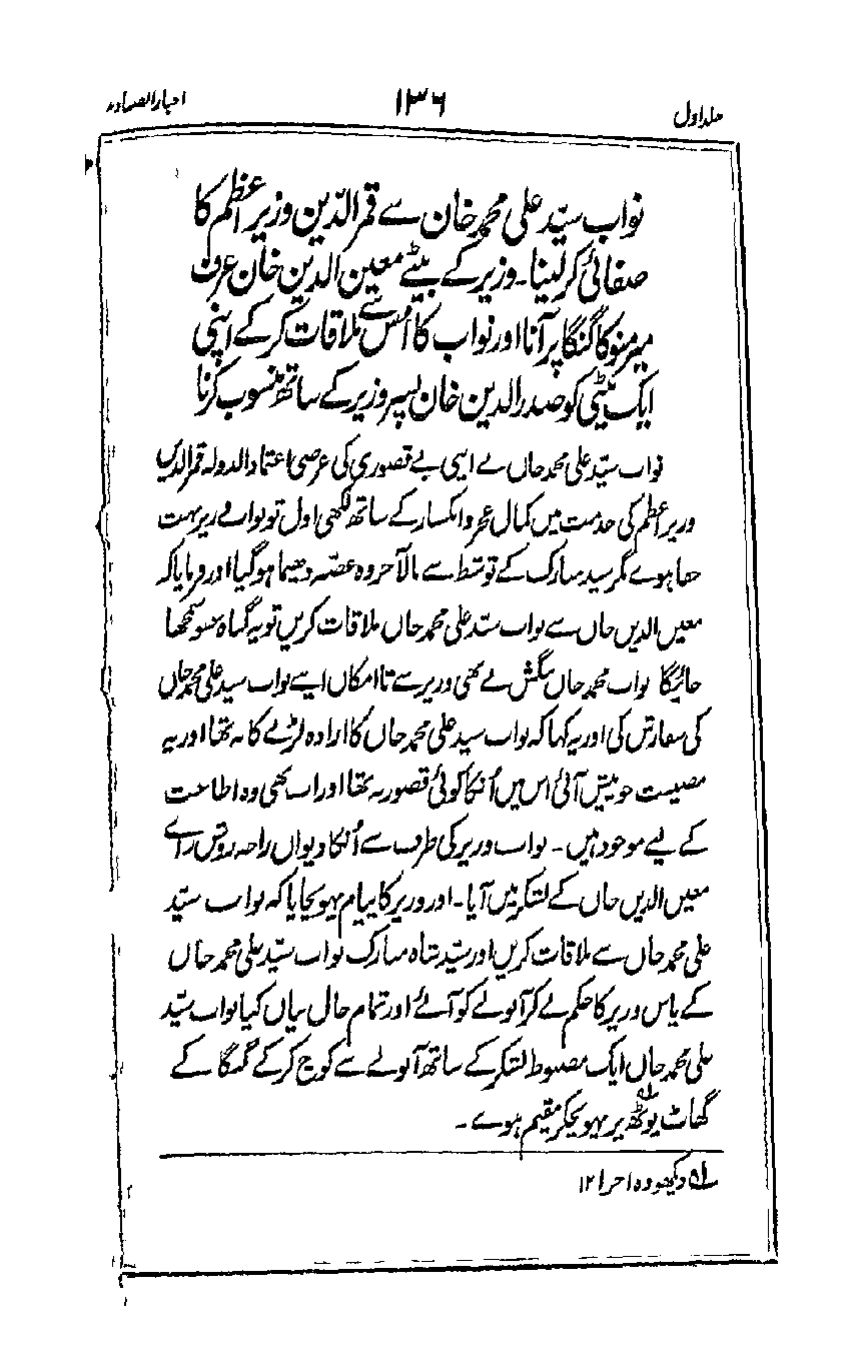 جلد اول ۱۳۶ اخبار الصنادید
نواب سیّد علی محمد خان سے قمر الدّین وزیر اعظم کا
صفائی کرلینا۔ وزیر کے بیٹے معین الدین خان عرف
میر منو کا گنگا پر آنا اور نواب کا اُس سے ملاقات کرکے اپنی
ایک بیٹی کو صدر الدین خان پسر وزیر کے ساتھ منسوب کرنا
نواب سیّد علی محمد خاں نے اپنی بے قصوری کی عرضی اعتماد الدولہ قمر الدین
وزیر اعظم کی خدمت میں کمال عجز و انکسار کے ساتھ لکھی اول تو نواب وزیر بہت
خفا ہوے مگر سید مبارک کے توسّط سے بالآخر وہ غصّہ دھیما ہوگیا اور فرمایا کہ
معین الدین خاں سے نواب سیّد علی محمد خاں ملاقات کریں تو یہ گناہ
جائیگا نواب محمد خاں بنگش نے بھی وزیر سے تا امکاں اپنے نواب سید علی محمد خاں
کی سفارش کی اور یہ کہا کہ نواب سید علی محمد خاں کا ارادہ لڑنے کا نہ تھا اور یہ
مصیبت جو پیش آئی اس میں اُنکا کوئی قصور نہ تھا اور اب بھی وہ اطاعت
کے لیے موجود ہیں۔ نواب وزیر کی طرف سے اُنکا دیواں راجہ روشن راے
معین الدین خاں کے لشکر میں آیا۔ اور وزیر کا پیام پہونچایا کہ نواب سیّد
علی محمد خاں سے ملاقات کریں اور سیّد شاہ مبارک نواب سیّد علی محمد خاں
کے پاس وزیر کا حکم لے کر آنولے کو آئے اور تمام حال بیاں کیا نواب سیّد
علی محمد خاں ایک مضبوط لشکر کے ساتھ آنولے سے کوچ کرکے گنگا کے
گھاٹ پوٹھ پر پہونچکر مقیم ہوے۔
لہ دیکھو وہ اجزا ۱۲